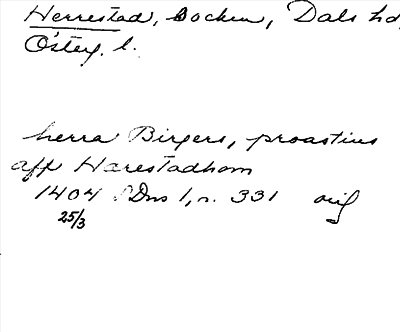 Herrestad, socken, Dals hd,
Österg. l.
herra Birgers, proastius
aff Harestadhom
1404 SDns 1, n. 331 orig
25/3